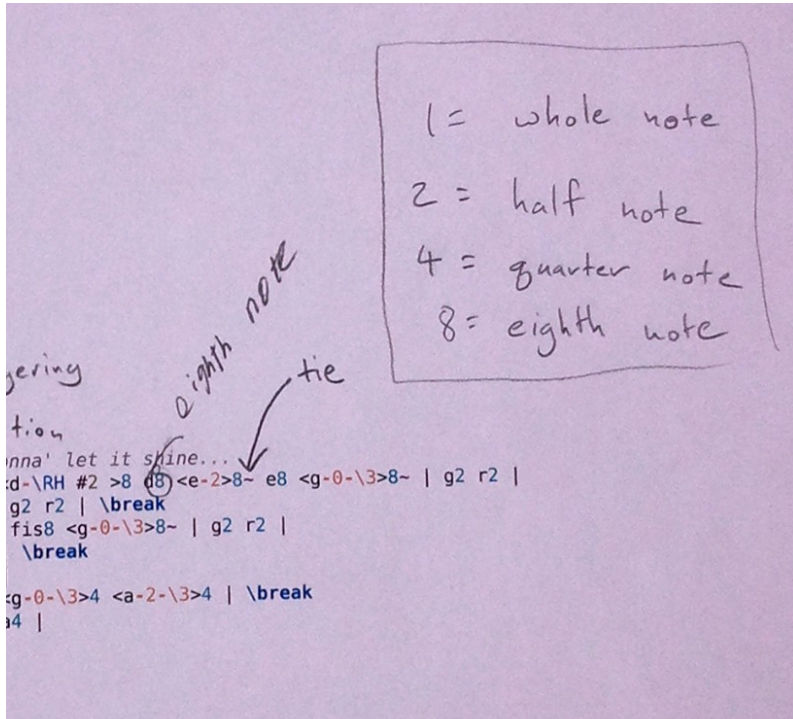 1= whole note
2 = half note
4 = quarter note
8= eighth note
eighth note
tie
gering
tion
nna' let it shine...
d-\RH #2 >8 d8 <e-2>8~ e8 <g-0-\3>8~ | g2 r2 |
g2 r2 | \break
fis8 <g-0-\3>8~ | g2 r2 |
\break
<g-0-\3>4 <a-2-\3>4 | \break
a4 |